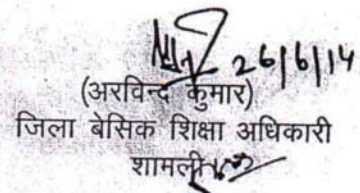 26/6/14
(अरविन्द कुमार)
जिला बेसिक शिक्षा अधिकारी
शामली